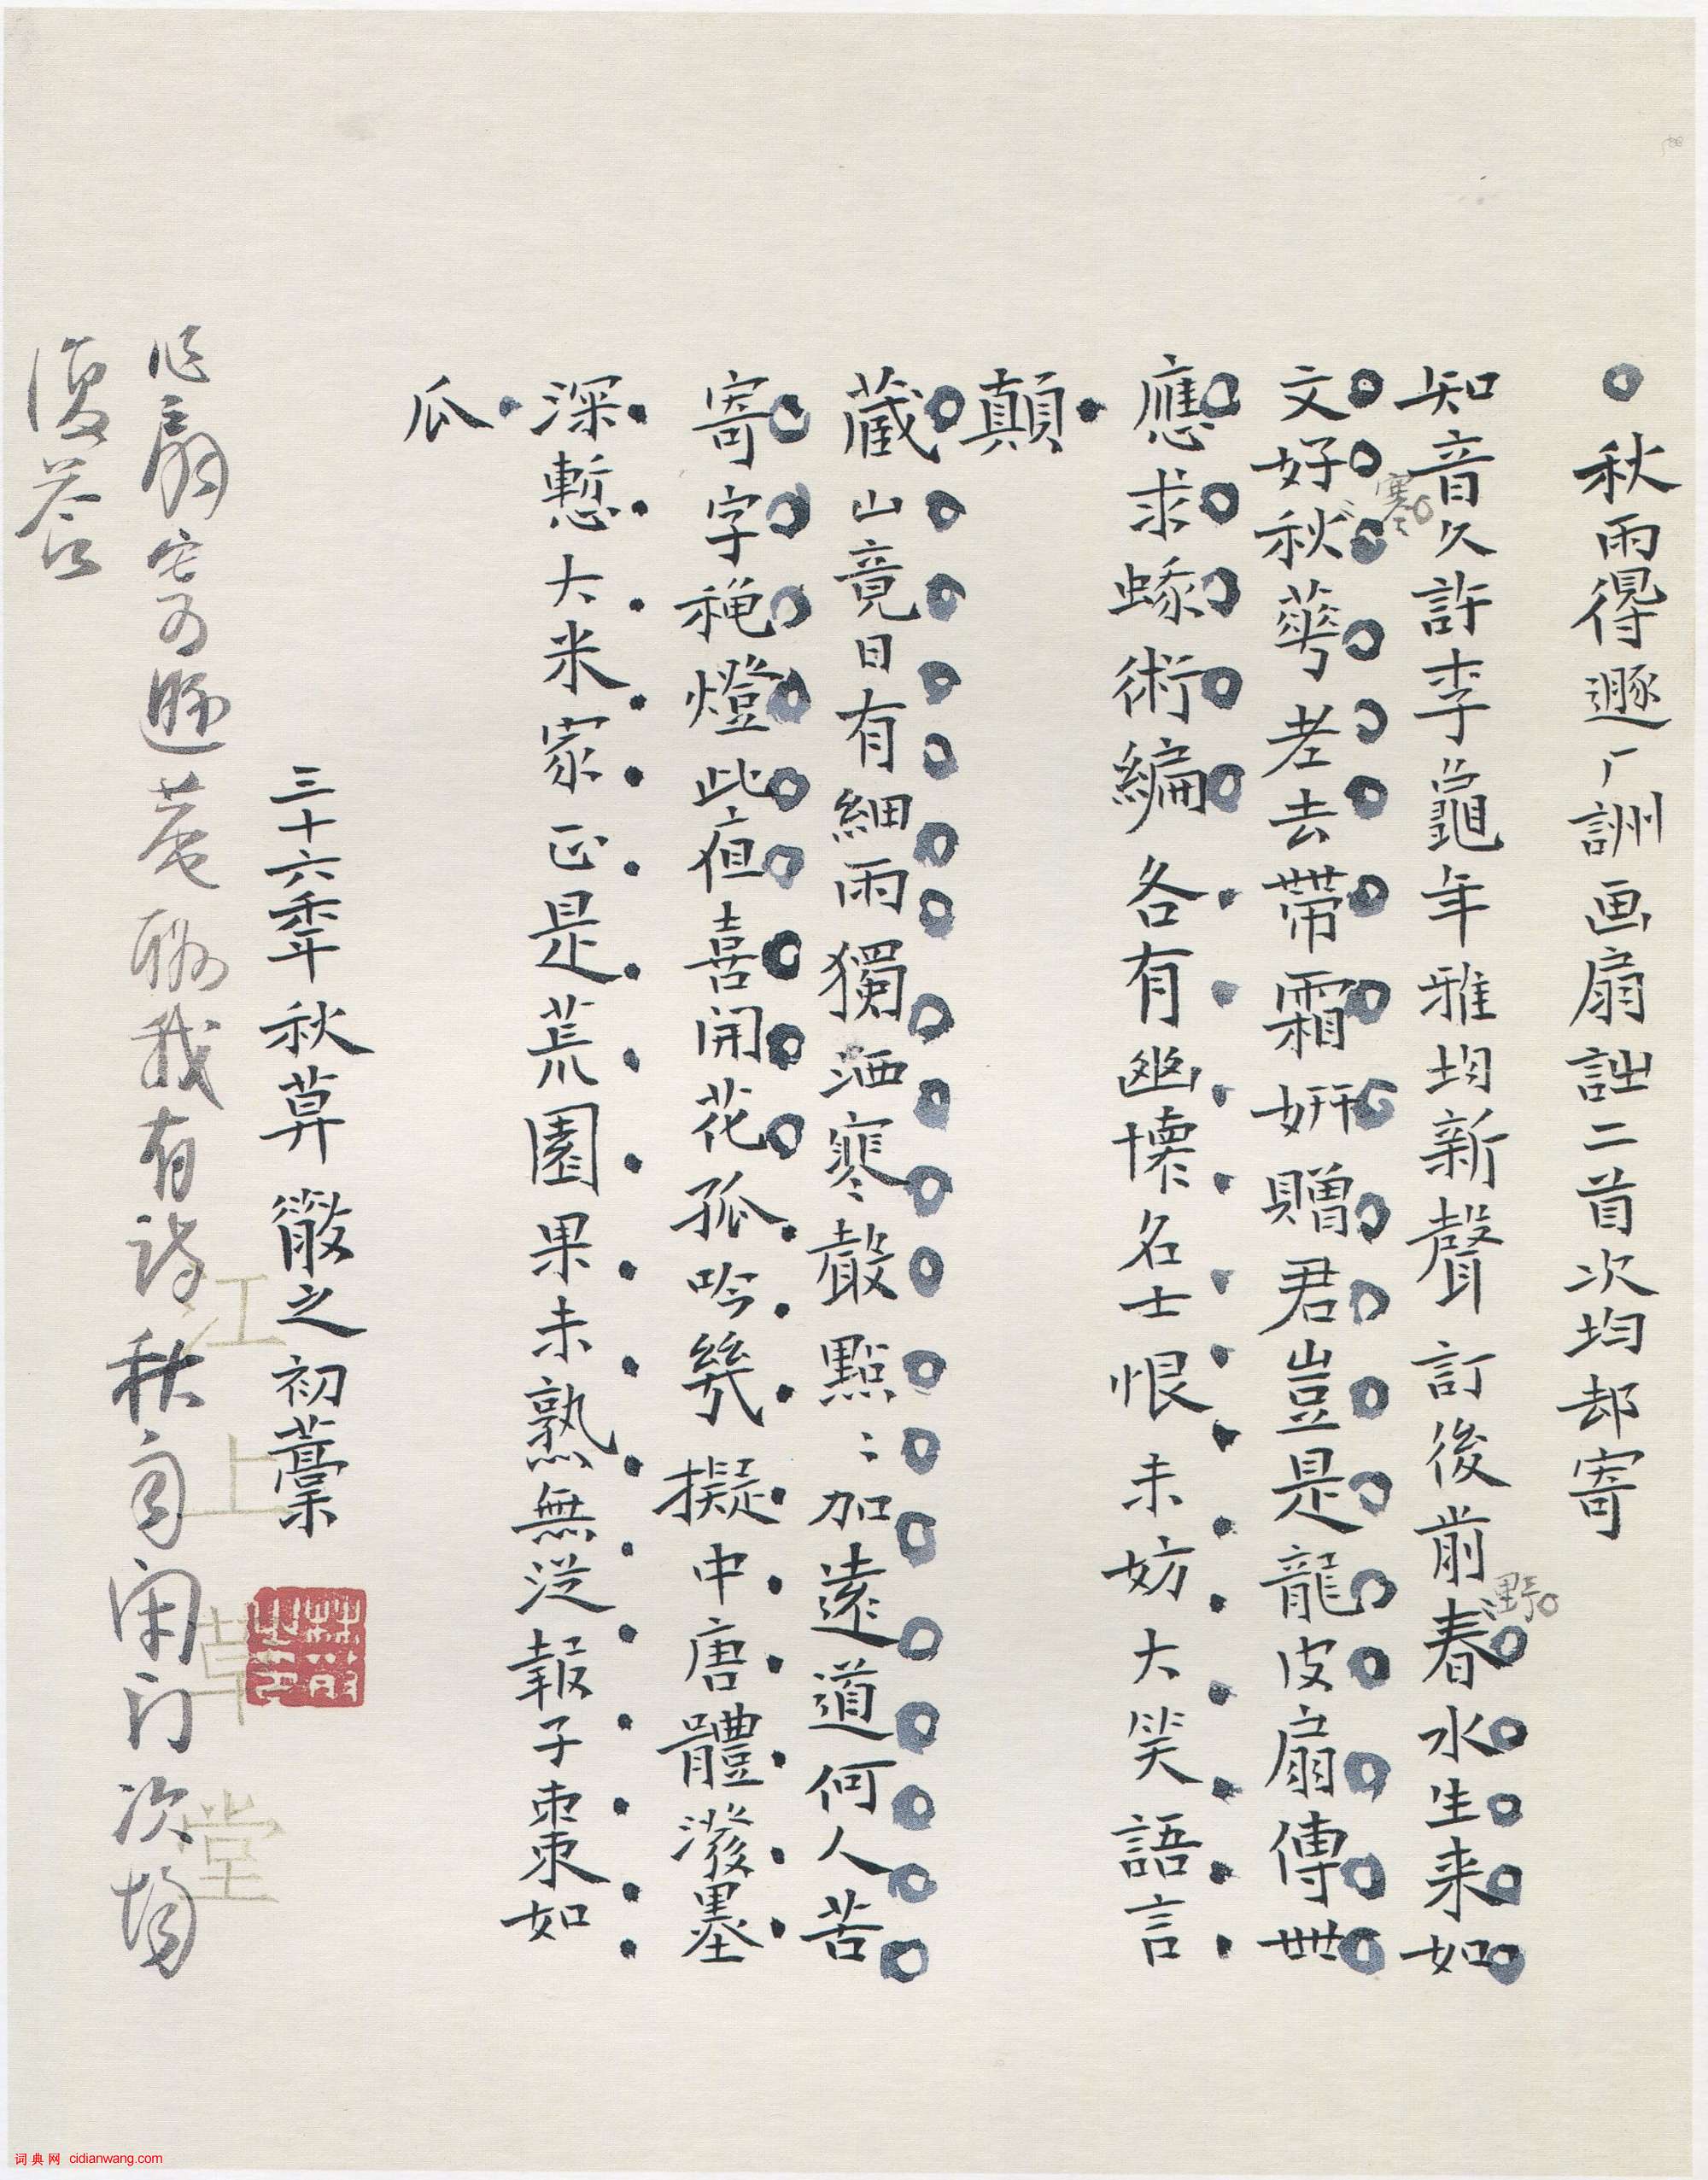 秋雨得遯厂訓画扇詘二首次均却寄
知音久許李龜年雅均新聲訂後前春水生来如
野
文好秋華老去帶霜妍贈君豈是龍皮扇傳世
寒
應求蝝術編各有幽懷名士恨未妨大笑語言
顛
藏山竟日有細雨獨洒寒聲點〻加遠道何人苦
寄字秾燈此值喜開花孤吟幾擬中唐體潑墨
深慙大米家正是荒園果未熟無從報子棗如
瓜
三十六年秋草散之初藁
江上草堂
林散之印
作扇寄遯菴
我有詩秋
門次均
復答
词典网 cidianwang.com